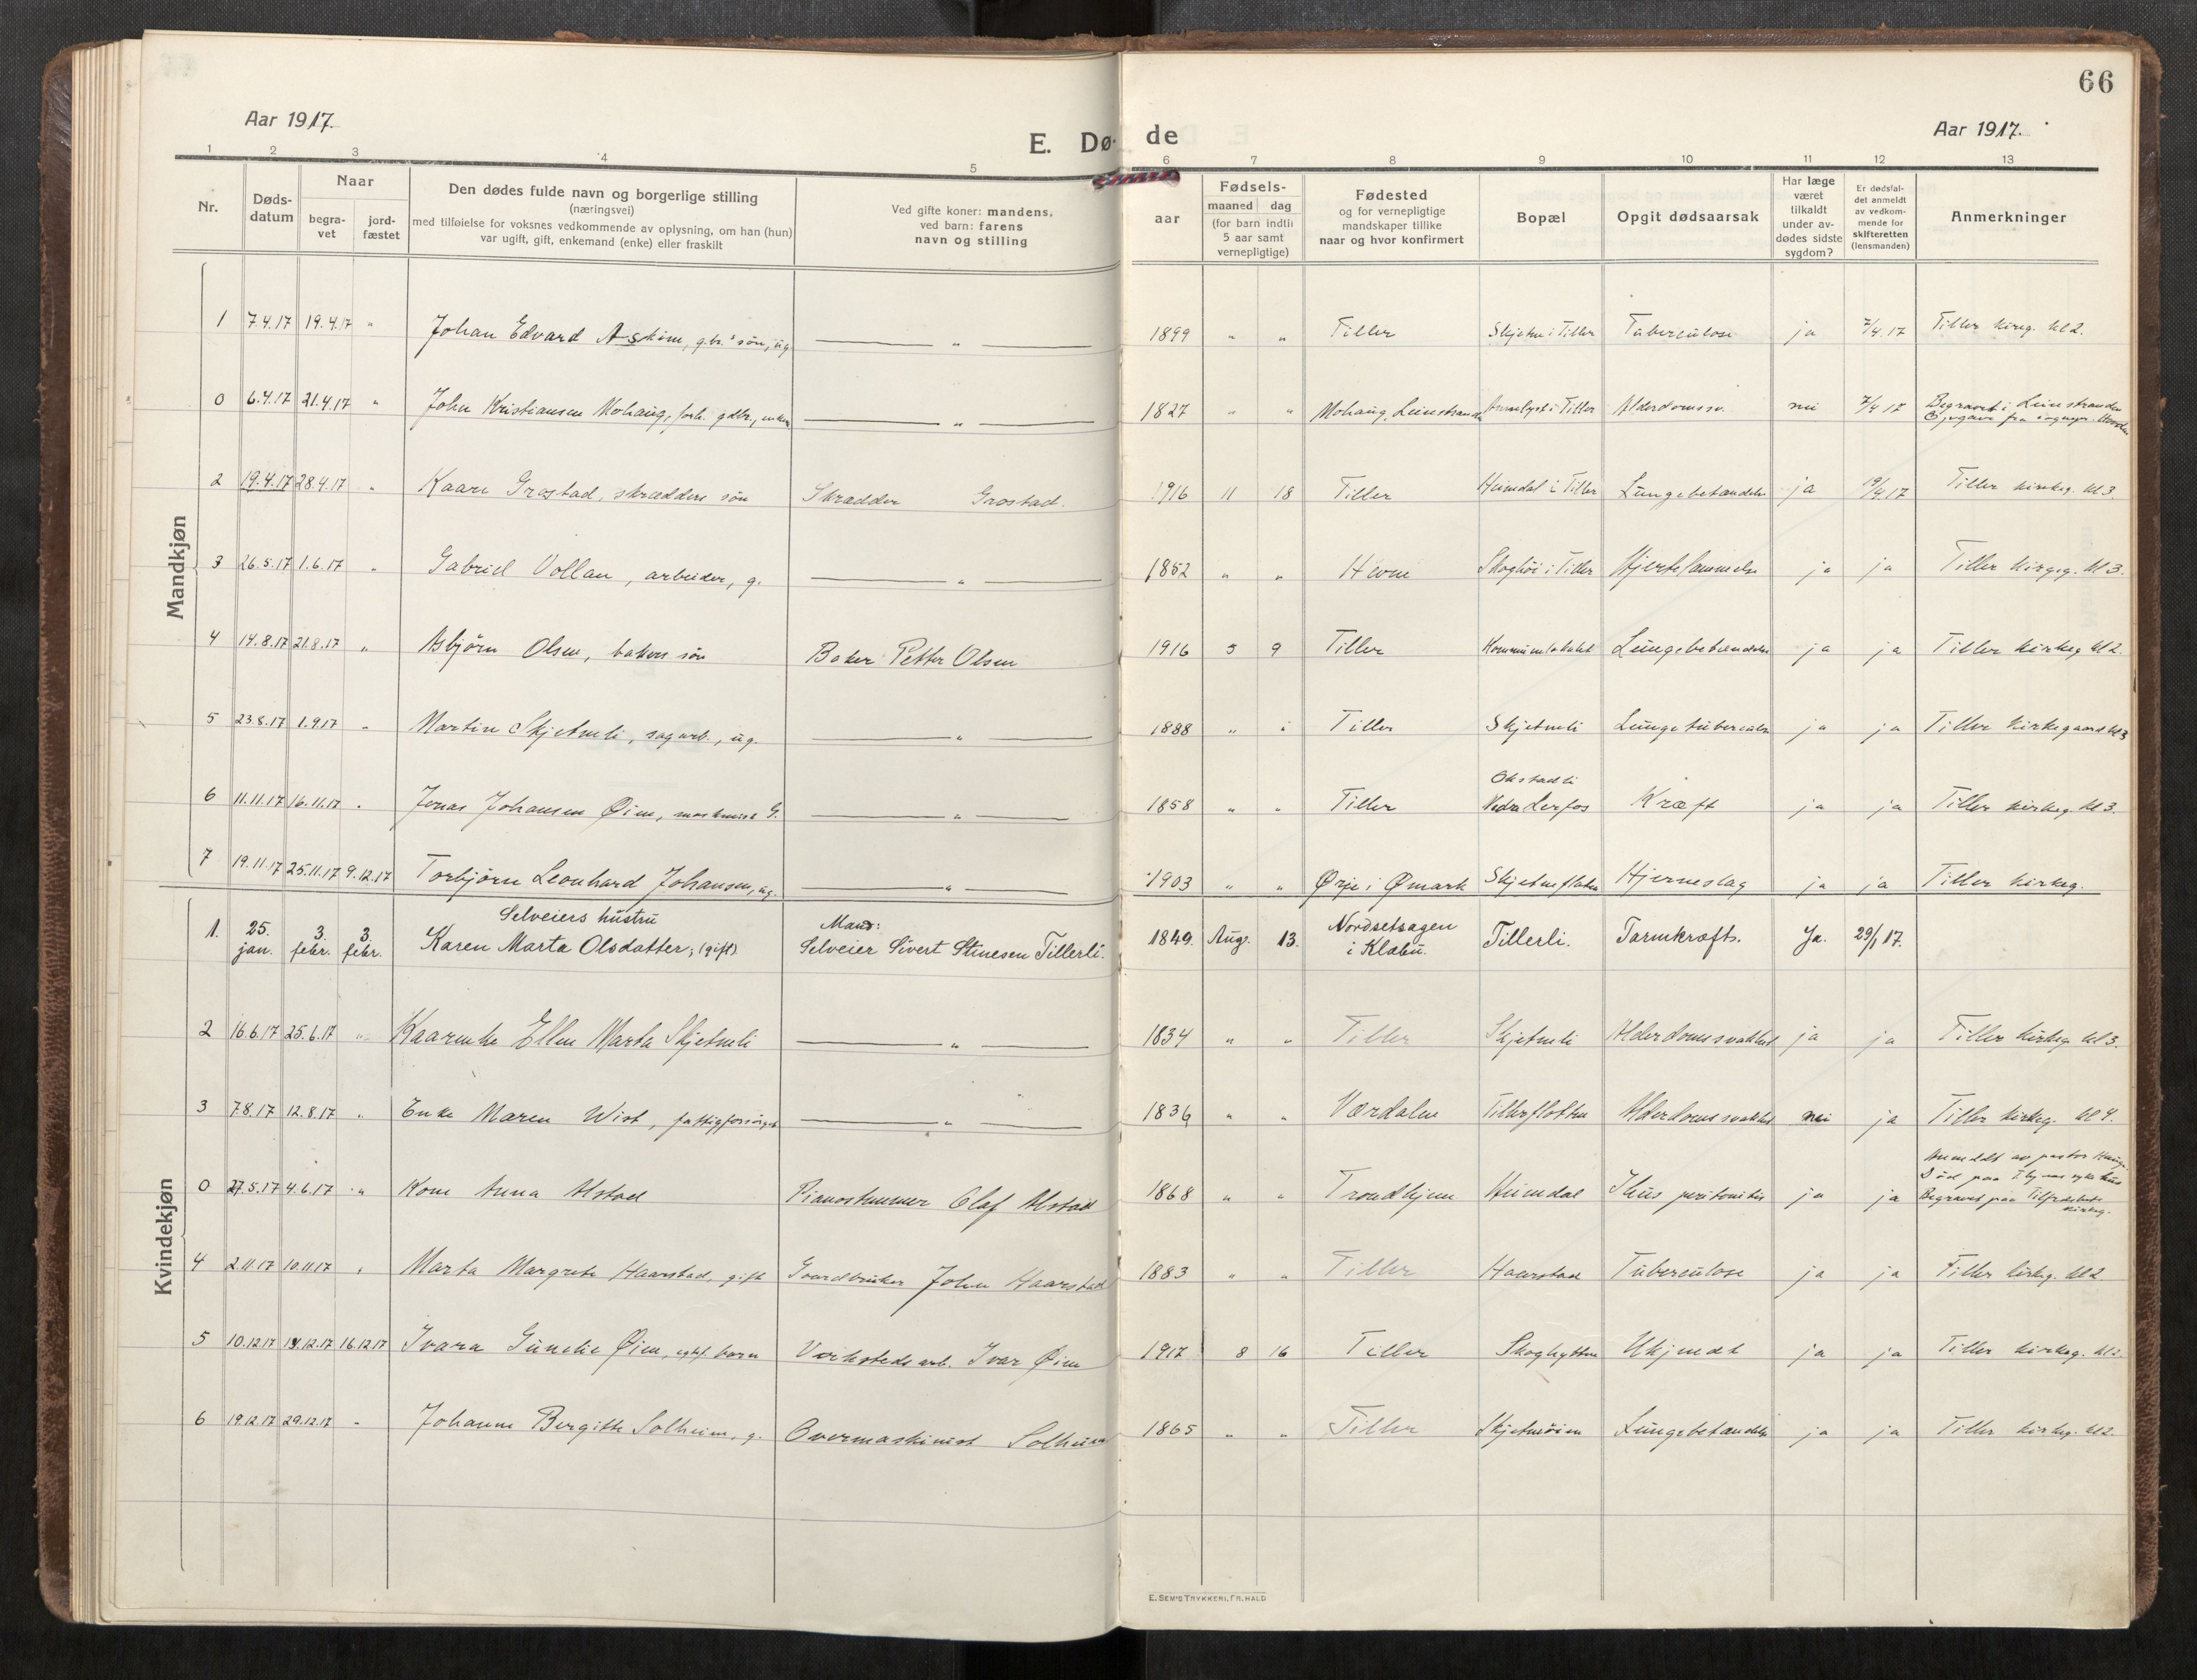 66
Aar 1917.
Aar 1917.
E. Døde
1 2 3 4 5 6 7 8 9 10 11 12 13
Nr.
Døds-
datum
Naar
begra-
vet
jord-
fæstet
Den dødes fulde navn og borgerlige stilling
(næringsvei)
med tilføielse for voksnes vedkommende av oplysning, om han (hun)
var ugift, gift, enkemand (enke) eller fraskilt
Ved gifte koner: mandens,
ved barn: farens
navn og stilling
Fødsels-
aar
maaned dag
(for barn indtil
5 aar samt
vernepligtige)
Fødested
og for vernepligtige
mandskaper tillike
naar og hvor konfirmert
Bopæl
Opgit dødsaarsak
Har læge
været
tilkaldt
under av-
dødes sidste
sygdom?
Er dødsfal-
det anmeldt
av vedkom-
mende for
skifteretten
(lensmanden)
Anmerkninger
Mandkjøn
1 7.4.17 19.4.17 " Johan Edvard Askim, g.br.s søn, ug. " 1899 " " Tiller Skjetne i Tiller Tuberculose ja 7/4 17 Tiller kirkeg. kl 2.
0 6.4.17 21.4.17 " John Kristiansen Mohaug, forh. gdbr., enkem. " 1827 " " Mohaug, Leinstranden i Tiller Alderdomssv. nei 7/4 17 Begravet i Leinstranden
2 19.4.17 28.4.17 " Kaare Grostad, skrædders søn Skrædder Grostad. 1916 11 18 Tiller Heimdal i Tiller Lungebetændelse ja 19/4 17 Tiller kirkeg. kl 3.
3 26.5.17 1.6.17 " Gabriel Vollan, arbeider, g. " 1852 " " Hevne Skoghøi i Tiller Hjertelammelse ja ja Tiller kirkeg. kl 3.
4 14.8.17 21.8.17 " Asbjørn Olsen, bakers søn Baker Petter Olsen 1916 5 9 Tiller Kommunelokalet Lungebetændelse ja ja Tiller kirkeg kl 2.
5 23.8.17 1.9.17 " Martin Skjetneli, sagarb., ug. " 1888 " " Tiller Skjetneli Lungetuberculose ja ja Tiller kirkegaard kl 3
6 11.11.17 16.11.17 " Jonas Johansen Øien, maskinist G. " 1858 " " Tiller Okstadli
Nedre Lerfos Kræft ja ja Tiller kirkeg. kl 3.
7 19.11.17 25.11.17 9.12.17 Torbjørn Leonhard Johansen, ug. " 1903 " " Ørje i Ømark Skjetneflaten Hjerneslag ja ja Tiller kirkeg.
Kvindekjøn
1. 25.
jan. 3.
febr. 3.
febr. Selveiers hustru
Karen Marta Olsdatter; (gift). Mand:
Selveier Sivert Stinesen Tillerli. 1849. Aug. 13. Nordsetsagen
i Klæbu. Tillerli. Tarmkræft. Ja. 29/1 17.
2 16.6.17 25.6.17 " Kaarenke Ellen Marta Skjetneli " 1834 " " Tiller Skjetneli Alderdomssvakhet ja ja Tiller kirkeg kl 3.
3 7.8.17 12.8.17 " Enke Maren Wist, fattigforsørget " 1836 " " Værdalen Tillerflotten Alderdomssvakhet nei ja Tiller kirkeg. kl 4.
0 27.5.17 4.6.17 " Kone Anna Alstad Pianostemmer Olaf Alstad 1868 " " Trondhjem Heimdal Ileus peritonitis ja ja Anmeldt av pastor
Død paa Thjems sykehus
Begravet paa Tilfredshets
kirkeg.
4 2.11.17 10.11.17 " Marta Margrete Haarstad, gift Gaardbruker John Haarstad 1883 " " Tiller Haarstad Tuberculose ja ja Tiller kirkeg. kl 2
5 10.12.17 14.12.17 16.12.17 Ivara Gunelie Øien, egtef. barn Verkstedsarb. Ivar Øien 1917 8 16 Tiller Skoghytten Ukjendt ja ja Tiller kirkeg. kl 2.
6 19.12.17 29.12.17 " Johanne Bergitte Solheim, g. Overmaskinist Solheim 1865 " " Tiller Skjetnøien Lungebetændelse ja ja Tiller kirkeg. kl 2.
E. SEM'S TRYKKERI, FR. HALD